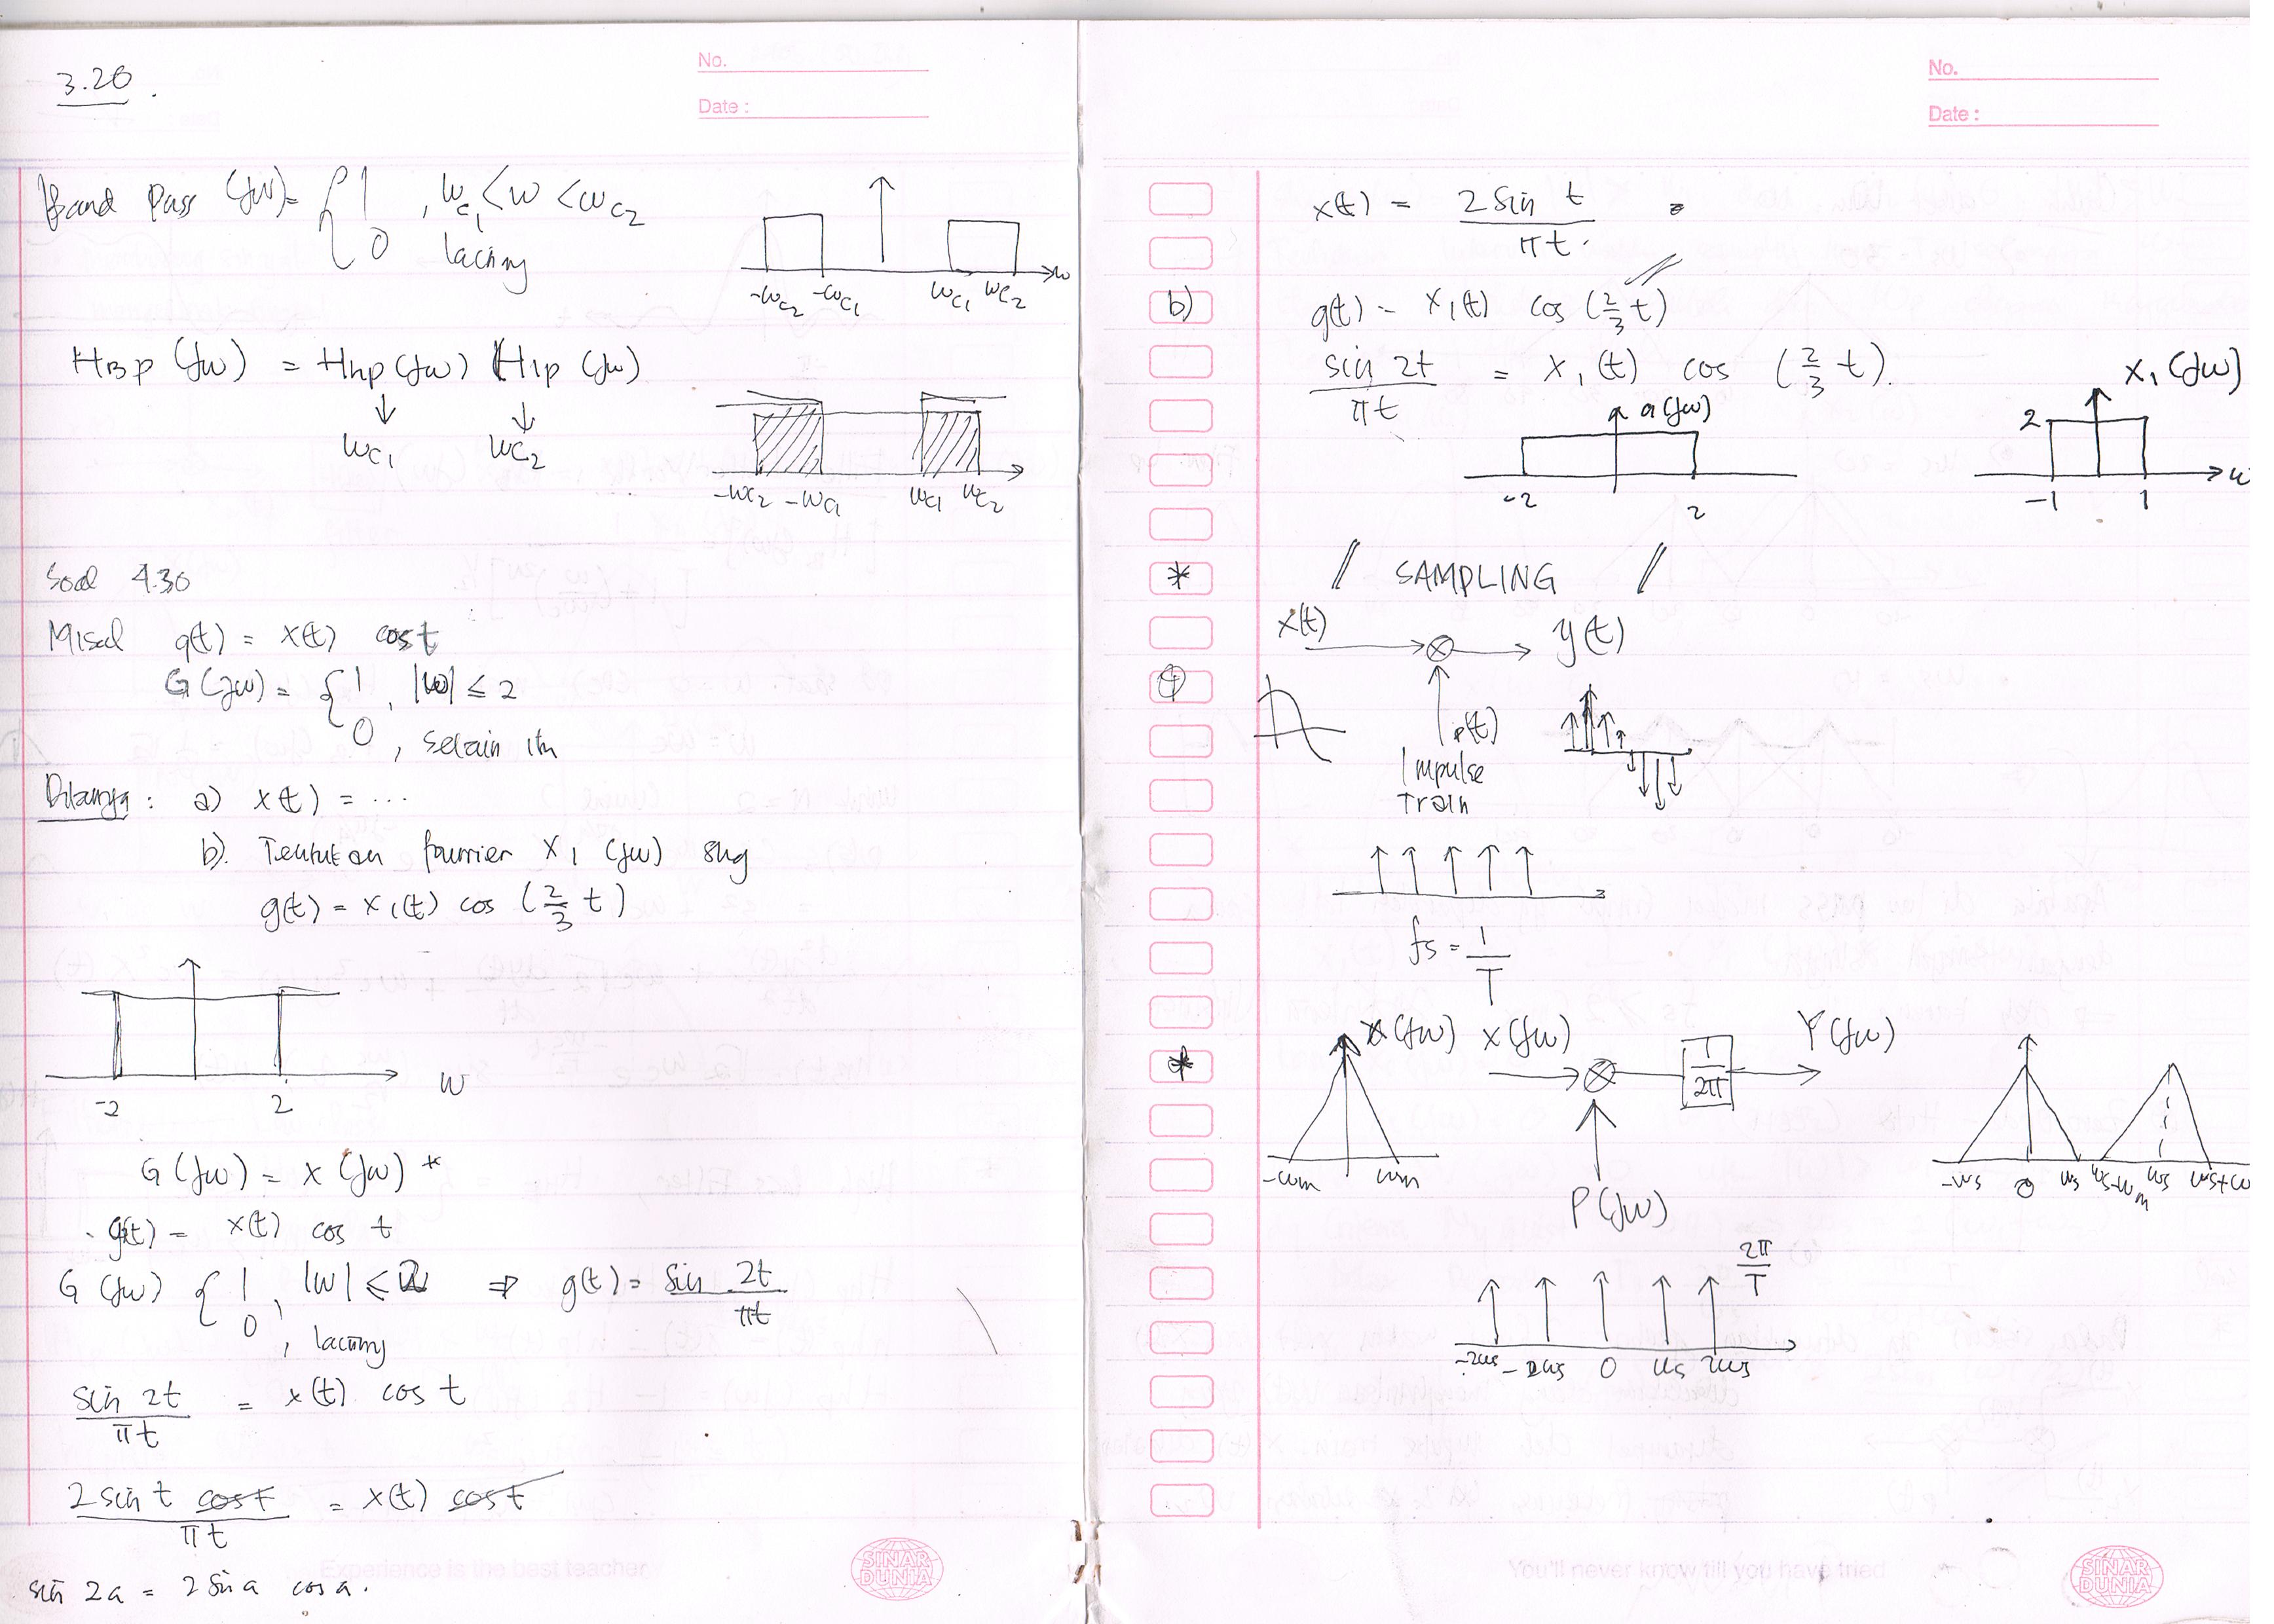 3.26
No.
Date :
Band Pass (jω) = { 1 , ωc1 < ω < ωc2
0 lainny
-ωc2 -ωc1 ωc1 ωc2 ω
HBp (jω) = Hhp (jω) Hlp (jω)
↓ ↓
ωc1 ωc2
-ωc2 -ωc1 ωc1 ωc2
Soal 4.30
Misal g(t) = x(t) cos t
G (jω) = { 1 , |ω| ≤ 2
0 , selain itu
Ditanya : a) x(t) = ...
b). Tentukan fourrier X1 (jω) shg
g(t) = x1(t) cos (2/3 t)
-2 2 ω
G (jω) = X (jω) *
g(t) = x(t) cos t
G (jω) { 1 , |ω| ≤ 2 ⇒ g(t) = sin 2t / πt
0 , lainny
sin 2t / πt = x(t) cos t
2 sin t cos t / πt = x(t) cos t
sin 2a = 2 sin a cos a.
Experience is the best teacher
SINAR DUNIA
No.
Date :
x(t) = 2 sin t / πt.
b) g(t) = x1(t) cos (2/3 t)
sin 2t / πt = x1(t) cos (2/3 t).
G(jω)
-2 2
X1 (jω)
2
-1 1 ω
* // SAMPLING //
x(t) ⊗ y(t)
p(t)
Impulse
Train
fs = 1/T
* X(jω) X(jω) ⊗ 1/2π Y(jω)
-ωm ωm
P(jω)
-ωs 0 ωs ωs-ωm ωs ωs+ω
2π/T
-2ωs -2ωs 0 ωs 2ωs
You'll never know till you have tried
SINAR DUNIA